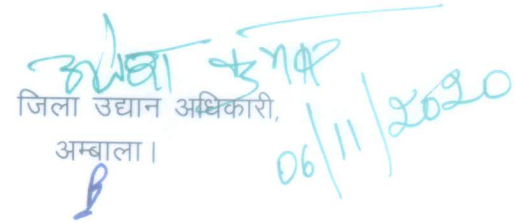 जिला उद्यान अधिकारी,
अम्बाला।
06/11/2020